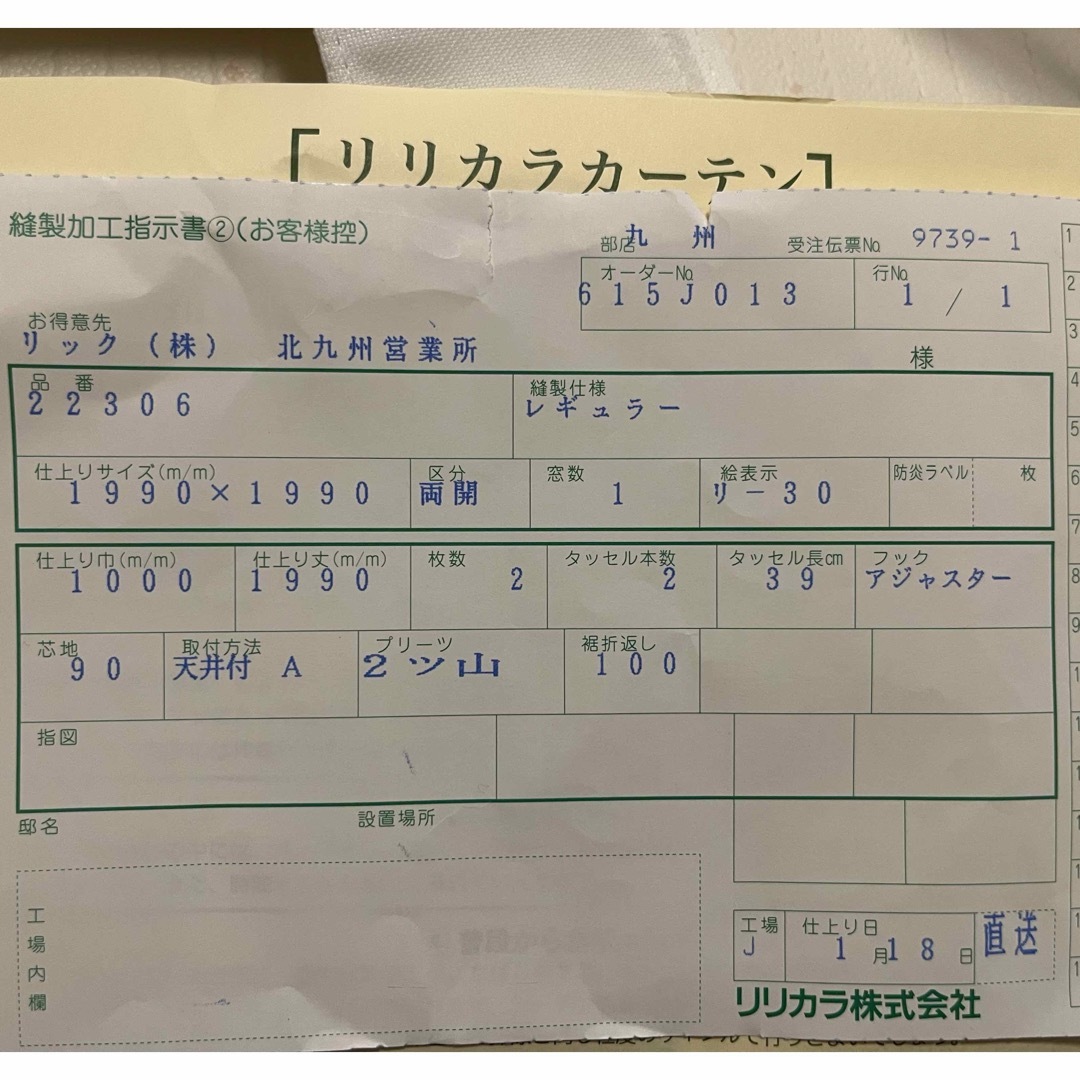 「リリカラカーテン」
縫製加工指示書②(お客様控)
部店 九 州 受注伝票№ 9739-1
オーダー№ 行№
615J013 1 / 1
お得意先
リック(株) 北九州営業所 様
品 番 縫製仕様
22306 レギュラー
仕上りサイズ(m/m) 区分 窓数 絵表示 防炎ラベル 枚
1990×1990 両開 1 リ-30
仕上り巾(m/m) 仕上り丈(m/m) 枚数 タッセル本数 タッセル長cm フック
1000 1990 2 2 39 アジャスター
芯地 取付方法 プリーツ 裾折返し
90 天井付 A 2ツ山 100
指図
邸名 設置場所
工場内欄
工場 仕上り日
J 1月18日 直送
リリカラ株式会社
1
2
3
4
5
6
7
8
9